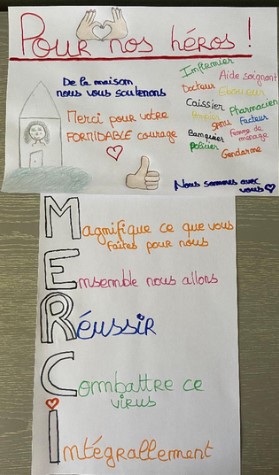 Pour nos héros !
De la maison
nous vous soutenons
Merci pour votre
FORMIDABLE courage
Infirmier
Aide soignant
Docteur
Éboueur
Caissier
Pharmacien
Pompier
SAMU
Facteur
Banquier
Femme de
ménage
Policier
Gendarme
Nous sommes avec
vous
MERCI
Magnifique ce que vous
faites pour nous
Ensemble nous allons
Réussir
Combattre ce
virus
intégrallement